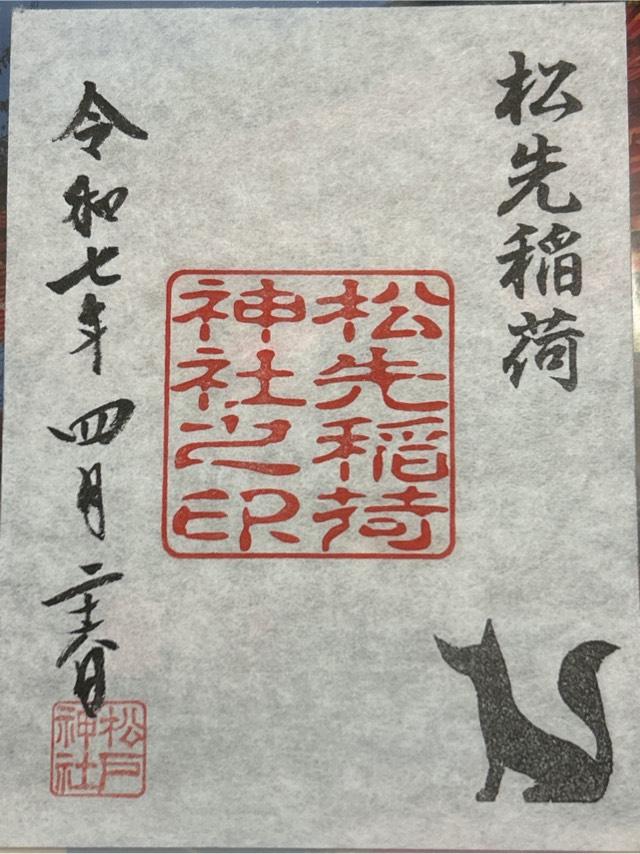 松先稲荷
松先稲荷
神社之印
令和七年四月二十八日
松戸
神社